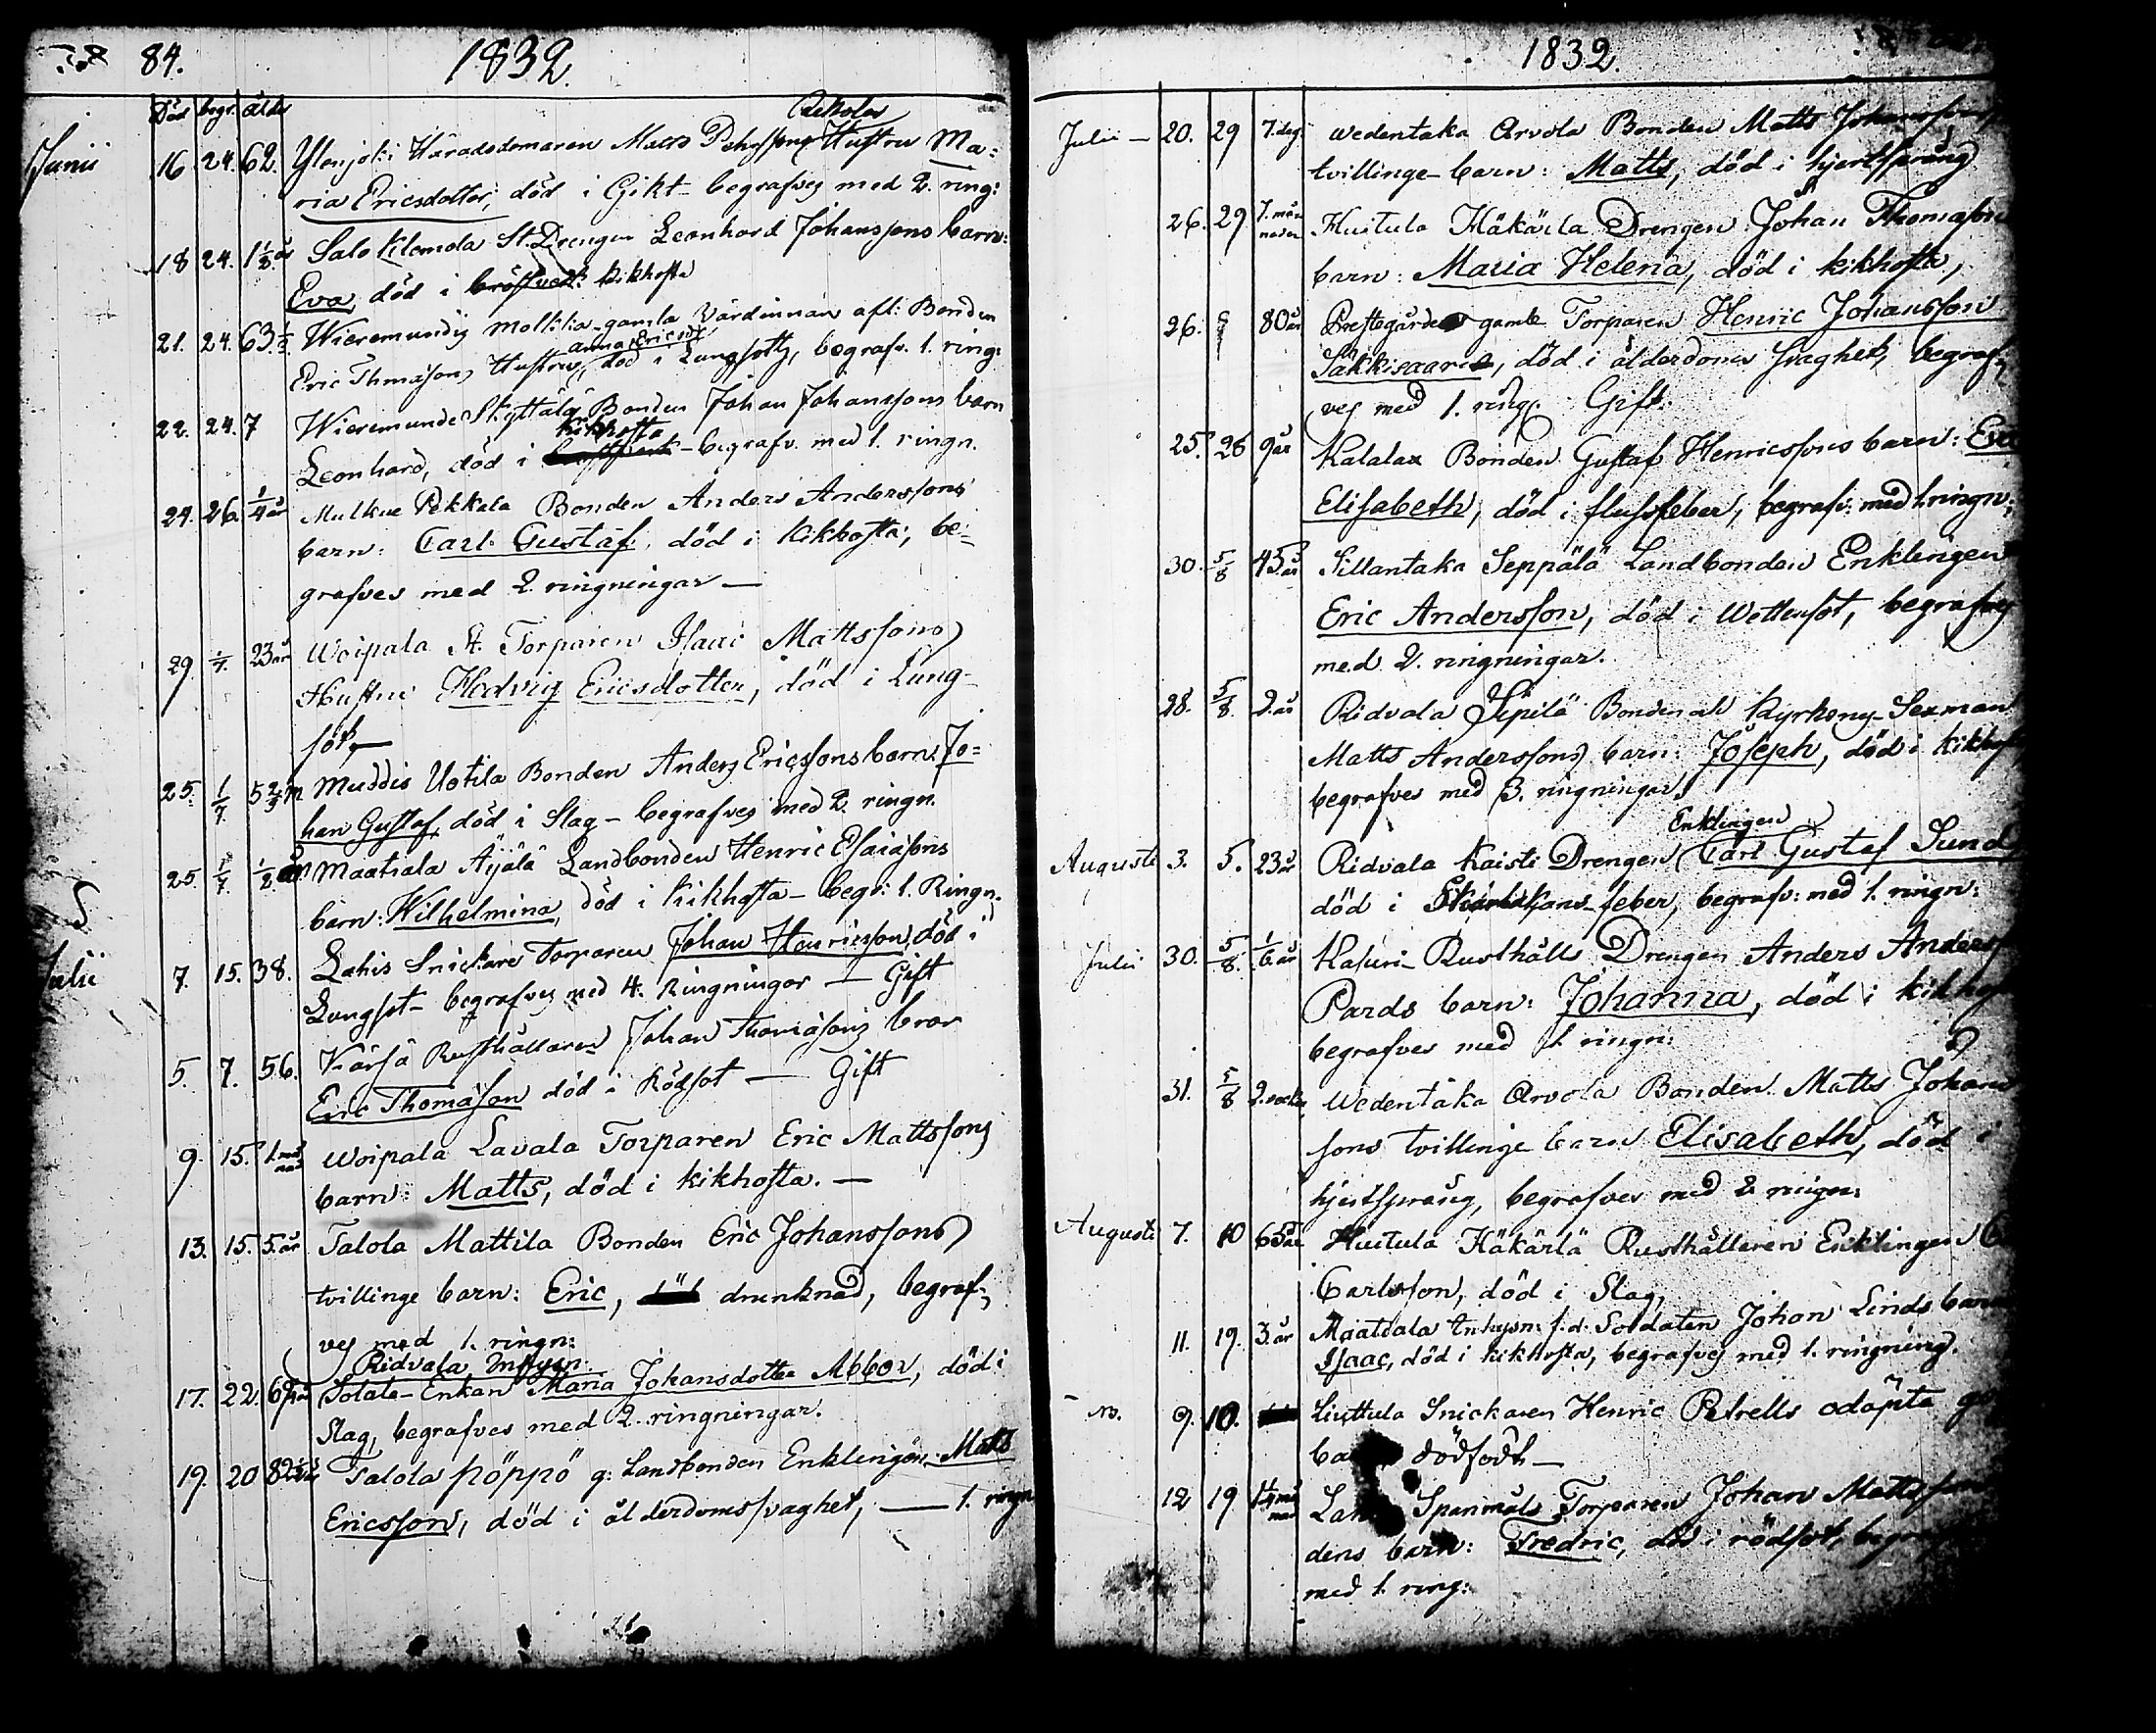 84. 1832.
Död begr. ålder
Rekola
Junii 16 24. 62. Ylenjoki Häradsdomaren Matts Hustru Ma=
ria Ericsdotter, död i Gikt – begrafves med 2. ring:
18 24. 1 1/8 år Salo Klemola St. Drengen Leonhard Johanssons barn:
Eva, död i kikhosta
21. 24. 63 1/2 Wieremundis Mollilia gamla Värdinnan afl: Bonden
Anna Ericsd:
Eric Thomasons Hustru, död i Lungsott, begrafv. 1. ring:
22. 24. 7 Wieremunde Skyttälä Bonden Johan Johanssons barn
kikhosta
Leonhard, död i – begrafv. med 1. ringn.
24. 26. 1/4 år Mulkue Pekkala Bonden Anders Anderssons
barn: Carl Gustaf, död i kikhosta, be=
grafves med 2. ringningar —
29 1/7. 23 år Woipala St. Torparen Isaac Mattssons
Hustru Hedvig Ericsdotter, död i Lung-
sot, —
25. 1/7. 5 2/3 m Muddis Uotila Bonden Anders Ericssons barn: Jo=
han Gustaf, död i Slag – begrafves med 2. ringn.
25 1/7. 1/8 år Maatiala Äijälä Landbonden Henric Esaiasons
barn: Wilhelmina, död i Kikhosta – begr: 1. Ringn.
Julii 7. 15. 38. Lahis Snickare Torparen Johan Henricsson, död i
Lungsot – begrafves med 4. Ringningar — Gift
5. 7. 56. Kärsä Rusthållaren Johan Thomasons bror
Eric Thomason död i Rödsot — Gift
9. 15. 1. må nad Woipala Lavala Torparen Eric Mattssons
barn: Matts, död i kikhosta. —
13. 15. 5. år Talola Mattila Bonden Eric Johanssons
tvillinge barn: Eric, drunknad, begraf-
ves med 1. ringn:
Ridvala Inhysn:
17. 22. Enkan Maria Johansdotter Abbor, död i
Slag, begrafves med 2. ringningar.
19. 20 82 år Talola pöppö g: Landbonden Enklingen Matts
Ericsson, död i ålderdomssvaghet, — 1. ringn
1832.
Julii – 20. 29 7. dag: Wedentaka Arvola Bonden Matts Johanssons
tvillinge barn: Matts, död i hjertsprång
26. 29 7. må nader Huitula Häkärla Drengen Johan Thomason
barn: Maria Helena, död i kikhosta,
26. 80 år Prestegårdens gamle Torparen Henric Johansson
Säkkisaari, död i ålderdoms svaghet, begraf-
ves med 1. ring. Gift.
25. 26 9 år Kalalax Bonden Gustaf Henricssons barn: Eva
Elisabeth, död i flussfeber, begrafv: med 1. ringn:
30. 5/8 45 år Sillantaka Seppälä Landbonden Enklingen
Eric Andersson, död i Wattusot, begrafves
med 2. ringningar.
28. 5/8. 2. år Ridvala Sipilä Bonden och Kyrkony Sexman
Matts Anderssons barn: Joseph, död i kikhos
begrafves med 3. ringningar.
Enklingen
Augusti 3. 5. 23 år Ridvala Kaisti Drengen Carl Gustaf Sund
död i feber, begrafv: med 1. ringn:
Julii 30. 5/8. 1/6 år Kasuri Rusthålls Drengen Anders Anderss
Pards barn: Johanna, död i kikho
begrafves med 1. ringn:
31. 5/8 2. veckor Wedentaka Arvola Bonden Matts Johans
sons tvillinge barn Elisabeth, död i
hjertsprång, begrafves med 2 ringn:
Augusti 7. 10 65 år Huitula Häkärlä Rusthållaren Enklingen
Carlsson, död i Slag,
11. 19. 3. år Maatiala Inhysn: f.d. Soldaten Johan Linds barn
Isaac, död i kikhosta, begrafves med 1. ringning.
9. 10. Liuttula Snickaren Henric Petrells odöpta
dödfödt —
12 19 Spanmåls Torparen Johan Mattss
dens barn: Fredric, död i rödsot,
med 1. ring: